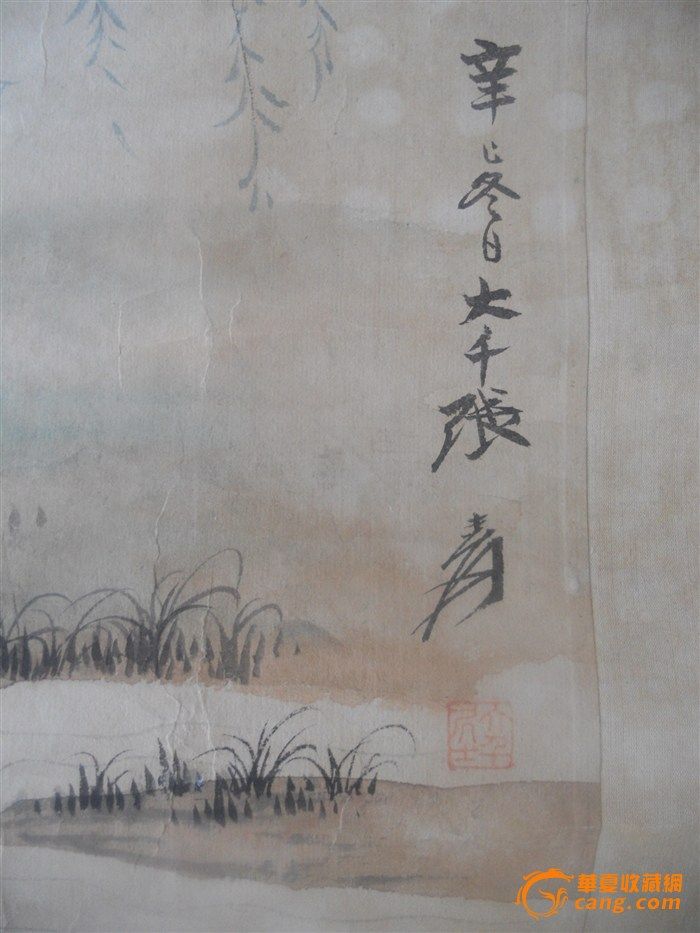 辛巳冬日大千張爰
大千居士
華夏收藏網
cang.com